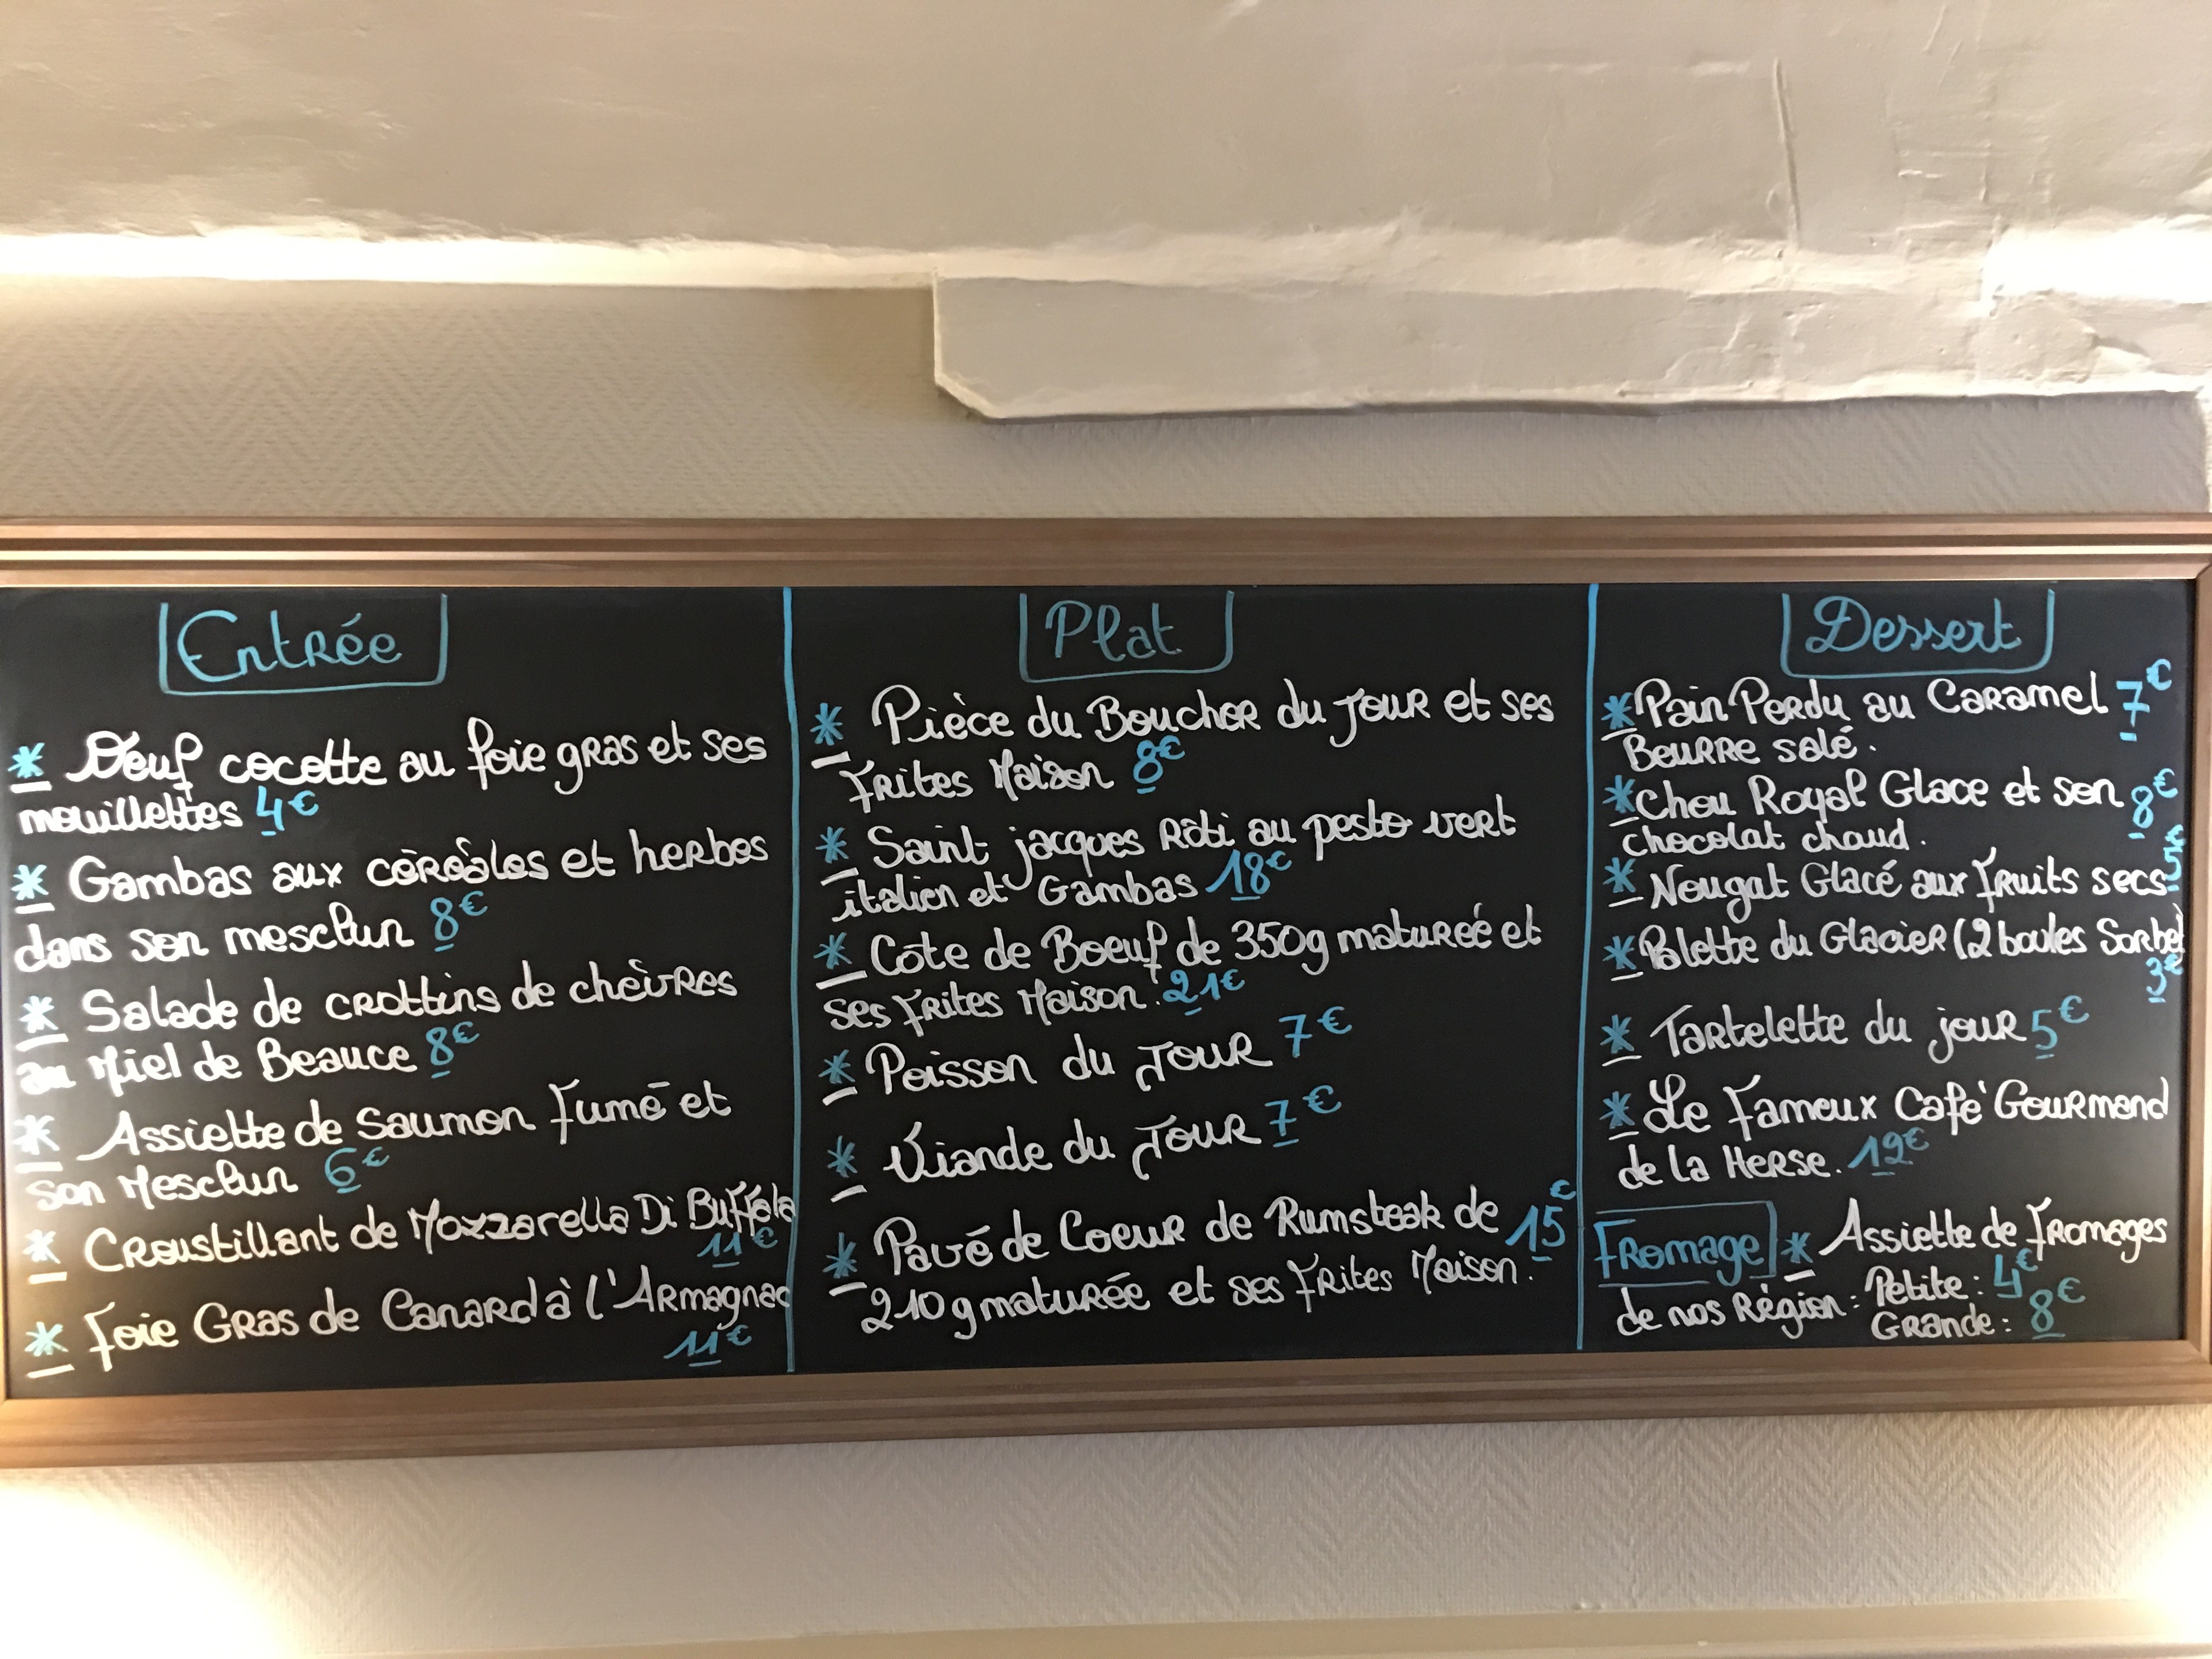 Entrée
* Oeuf cocotte au foie gras et ses
mouillettes 4€
* Gambas aux céréales et herbes
dans son mesclun 8€
* Salade de crottins de chèvres
au Miel de Beauce 8€
* Assiette de saumon fumé et
son Mesclun 6€
* Croustillant de Mozzarella Di Buffala
11€
* Foie Gras de Canard à l'Armagnac
11€
Plat
* Pièce du Boucher du jour et ses
Frites Maison 8€
* Saint jacques Rôti au pesto vert
italien et Gambas 18€
* Côte de Boeuf de 350g maturéé et
ses frites Maison. 21€
* Poisson du Jour 7€
* Viande du Jour 7€
* Pavé de Coeur de Rumsteak de 15€
210g maturée et ses Frites Maison.
Dessert
* Pain Perdu au Caramel 7€
Beurre salé.
* Chou Royal Glace et son 8€
chocolat chaud.
* Nougat Glacé aux Fruits secs 5€
* Palette du Glacier (2 boules Sorbet)
3€
* Tartelette du jour 5€
* Le Fameux Café Gourmand
de la Herse. 12€
Fromage * Assiette de Fromages
de nos Région : Petite : 4€
Grande : 8€